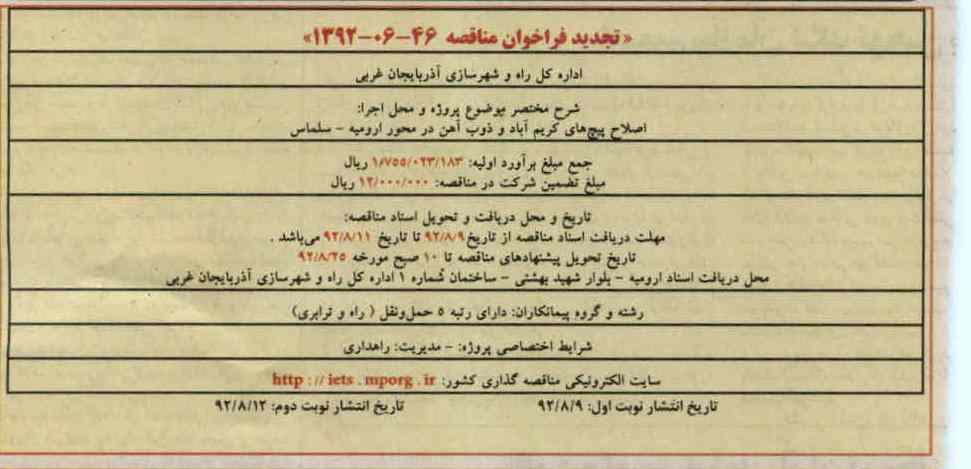 «تجدید فراخوان مناقصه ۴۶-۰۶-۱۳۹۲»
اداره کل راه و شهرسازی آذربایجان غربی
شرح مختصر موضوع پروژه و محل اجرا:
اصلاح پیچ‌های کریم آباد و ذوب آهن در محور ارومیه - سلماس
جمع مبلغ برآورد اولیه: ۱/۷۵۵/۰۲۳/۱۸۳ ریال
مبلغ تضمین شرکت در مناقصه: ۱۲/۰۰۰/۰۰۰ ریال
تاریخ و محل دریافت و تحویل اسناد مناقصه:
مهلت دریافت اسناد مناقصه از تاریخ ۹۲/۸/۹ تا تاریخ ۹۲/۸/۱۱ می‌باشد .
تاریخ تحویل پیشنهادهای مناقصه تا ۱۰ صبح مورخه ۹۲/۸/۲۵
محل دریافت اسناد ارومیه - بلوار شهید بهشتی - ساختمان شماره ۱ اداره کل راه و شهرسازی آذربایجان غربی
رشته و گروه پیمانکاران: دارای رتبه ۵ حمل‌ونقل ( راه و ترابری)
شرایط اختصاصی پروژه: - مدیریت: راهداری
سایت الکترونیکی مناقصه گذاری کشور: http : // iets . mporg . ir
تاریخ انتشار نوبت اول: ۹۲/۸/۹ تاریخ انتشار نوبت دوم: ۹۲/۸/۱۲